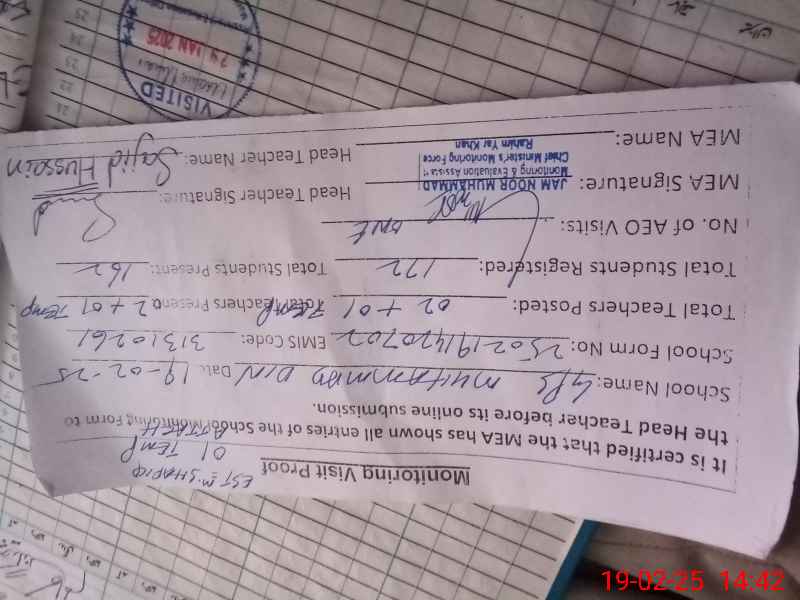 Monitoring Visit Proof
EST M. SHAFIQ
01 TEMP
It is certified that the MEA has shown all entries of the School Monitoring Form to
the Head Teacher before its online submission.
School Name: GPS MUHAMMAD DIN Date 19-02-25
School Form No: 2502191420702 EMIS Code: 31310261
Total Teachers Posted: 02 + 01 Temp Total Teachers Present: 02 + 01 Temp
Total Students Registered: 172 Total Students Present: 162
No. of AEO Visits: ONE
MEA Signature: Head Teacher Signature:
JAM NOOR MUHAMMAD
Monitoring & Evaluation Assistant
Chief Minister's Monitoring Force
Rahim Yar Khan
MEA Name: Head Teacher Name: Sajid Hussain
VISITED
24 JAN 2025
21
22
23
24
25
19-02-25 14:42